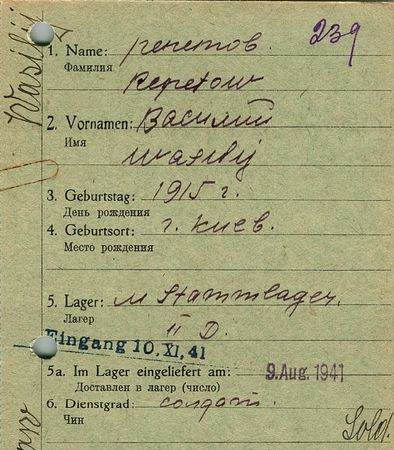 239
Wasilij
1. Name: Репетов.
Фамилия
Repetow
2. Vornamen: Василий
Имя
Wasilij
3. Geburtstag: 1915 г.
День рождения
4. Geburtsort: г. Киев.
Место рождения
5. Lager: M Stammlager.
Лагер
II D.
Eingang 10. XI. 41
5a. Im Lager eingeliefert am: 9. Aug. 1941
Доставлен в лагер (число)
6. Dienstgrad: солдат.
Чин
Sold.